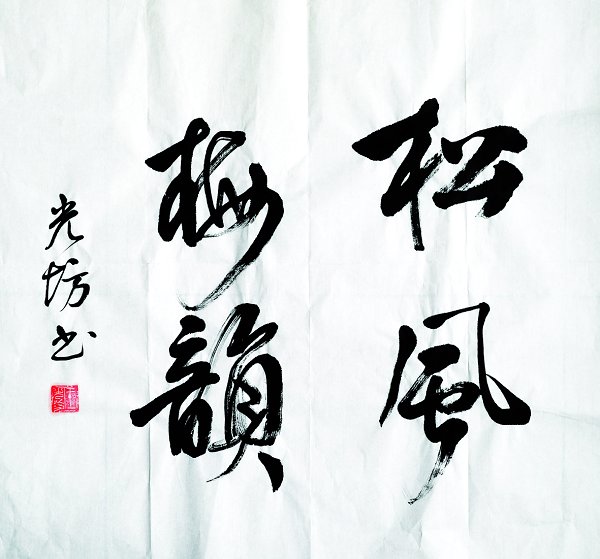 松風
梅韻
光坊书